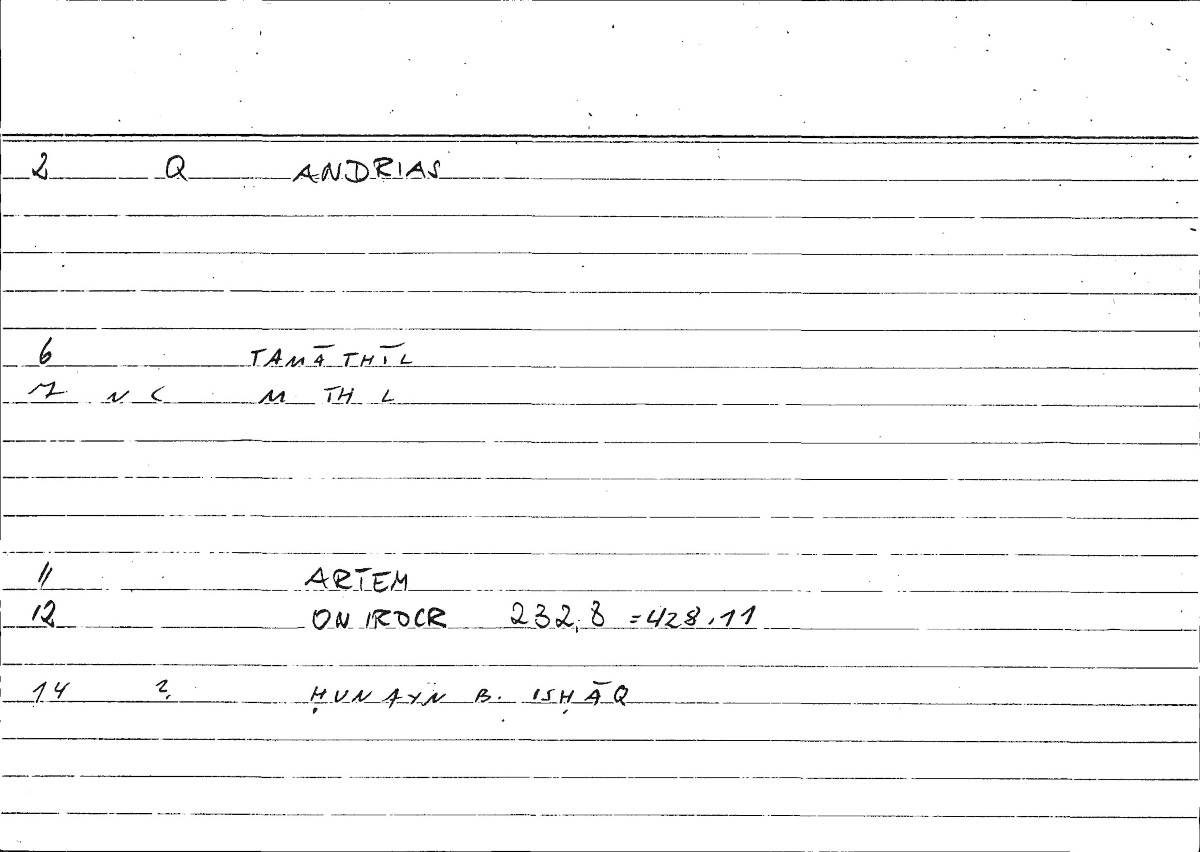 2 Q ANDRIAS
6 TAMĀTHĪL
7 N C M TH L
11 ARTEM
12 ONIROCR 232,8 =428.11
14 2. ḤUNAYN B. ISḤĀQ